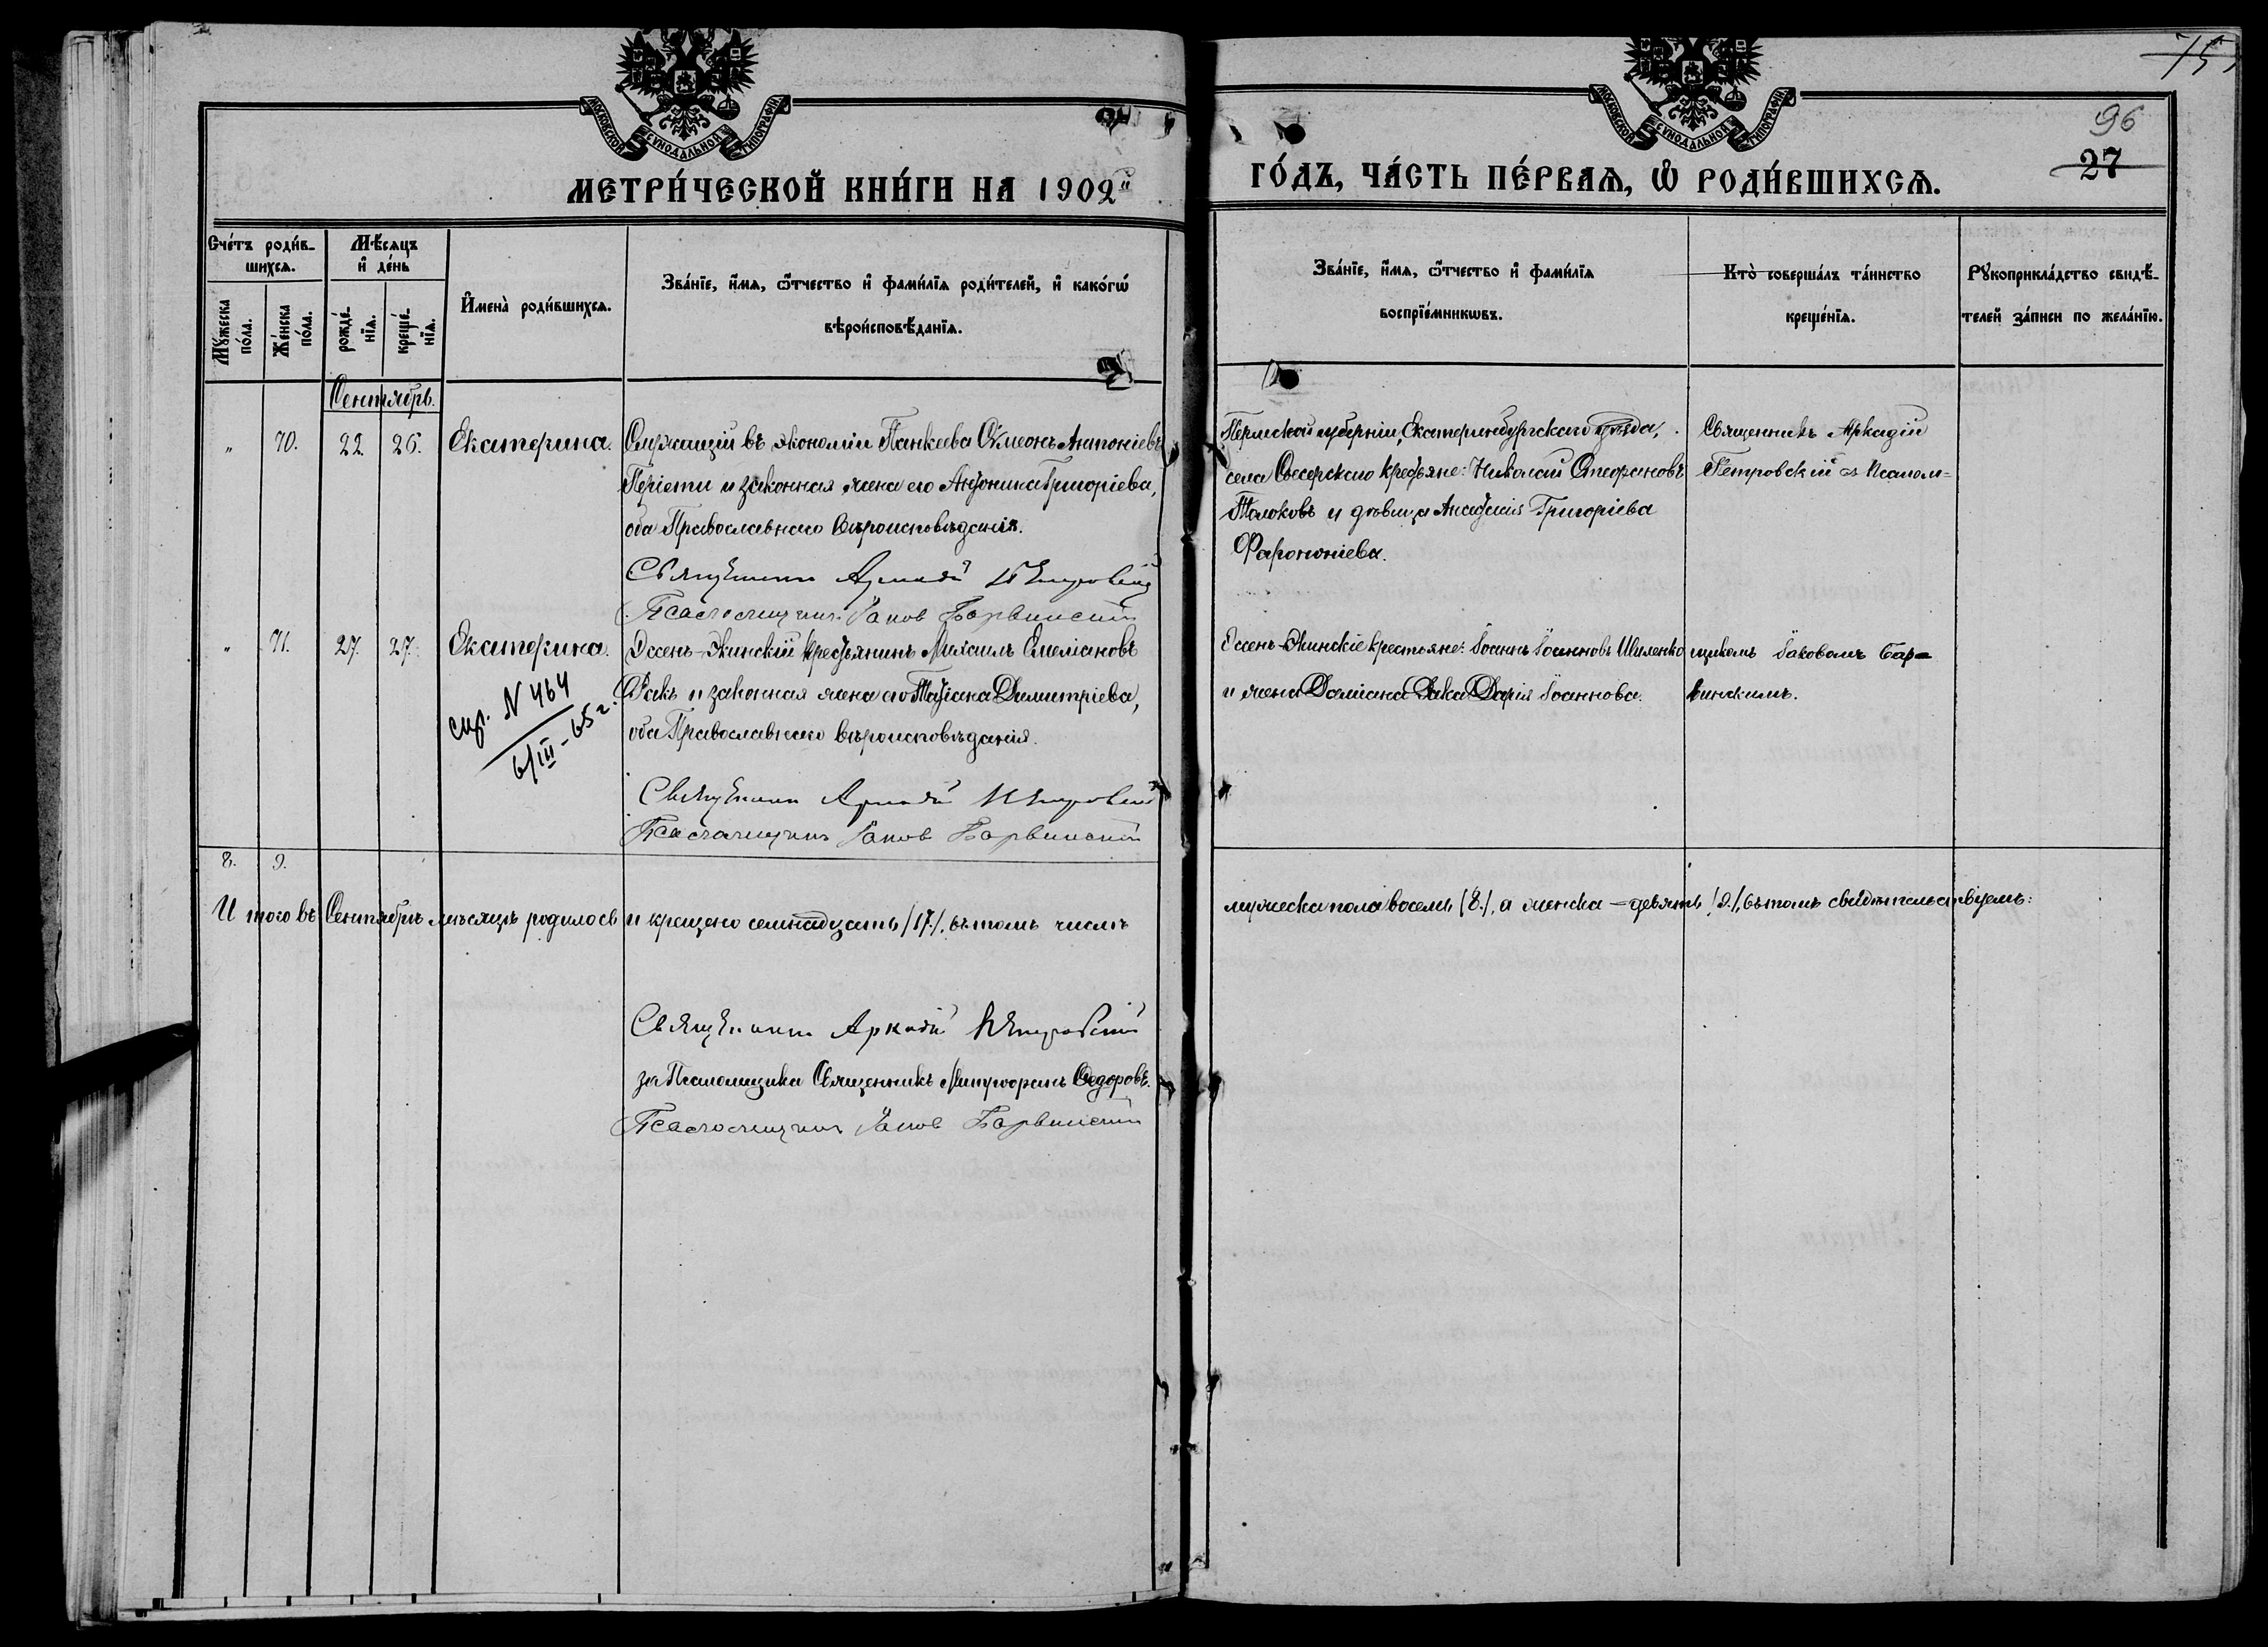 75
96
27
МОСКОВСКОЙ СѴНОДАЛЬНОЙ ТИПОГРАФІИ
МОСКОВСКОЙ СѴНОДАЛЬНОЙ ТИПОГРАФІИ
МЕТРИ́ЧЕСКОЙ КНИ́ГИ НА 1902й
ГО́ДЪ, ЧА́СТЬ ПЕ́РВАѦ, Ѽ РОДИ́ВШИХСѦ.
Сче́тъ роди́в-
шихсѧ.
Мѣ́сѧцъ
и҆ де́нь
Мꙋ́жеска
по́ла.
Же́нска
по́ла.
рожде́-
нїѧ.
креще́-
нїѧ.
И҆мена̀ роди́вшихсѧ.
Зва́нїе, и҆́мѧ, ѻ҆́тчество и҆ фами́лїѧ роди́телей, и҆ како́гѡ
вѣроисповѣ́данїѧ.
Зва́нїе, и҆́мѧ, ѻ҆́тчество и҆ фами́лїѧ
воспрїе́мникѡвъ.
Кто̀ соверша́лъ та́инство
креще́нїѧ.
Рꙋкоприкла́дство свидѣ́-
телей за́писи по жела́нїю.
Сентябрь.
" 70. 22. 26. Екатерина.
Служащій въ экономіи Панкеева Сѵмеонъ Антоніевъ
Періети и законная жена его Антонина Григоріева,
оба Православнаго вѣроисповѣданія.
Священникъ Аркадій Петровскій
Псаломщикъ Іаковъ Барвинскій
Пермской губерніи, Екатеринбургскаго уѣзда,
села Сысерскаго крестьяне: Николай Стефановъ
Толоковъ и дѣвица Анастасія Григоріева
Священникъ Аркадій
Петровскій съ Псалом-
" 71. 27. 27. Екатерина.
спр. N 464
6/III - 65 г.
Эссенъ-Экинскій крестьянинъ Михаилъ Емеліановъ
Закъ и законная жена его Татіана Димитріева,
оба Православнаго вѣроисповѣданія.
Священникъ Аркадій Петровскій
Псаломщикъ Іаковъ Барвинскій
Ессенъ-Экинскіе крестьяне: Іоаннъ Іоанновъ Шиленко
и жена Даміана Зака Дарія Іоаннова.
щикомъ Іаковомъ Бар-
винскимъ.
8. 9.
И того въ Сентябрѣ мѣсяцѣ родилось и крещено семнадцать /17./, въ томъ числѣ
мужеска пола восемь /8./, а женска - девять /9./, въ томъ свидѣтельствуемъ:
Священникъ Аркадій Петровскій
за Псаломщика Священникъ Митрофанъ Ѳедоровъ.
Псаломщикъ Іаковъ Барвинскій